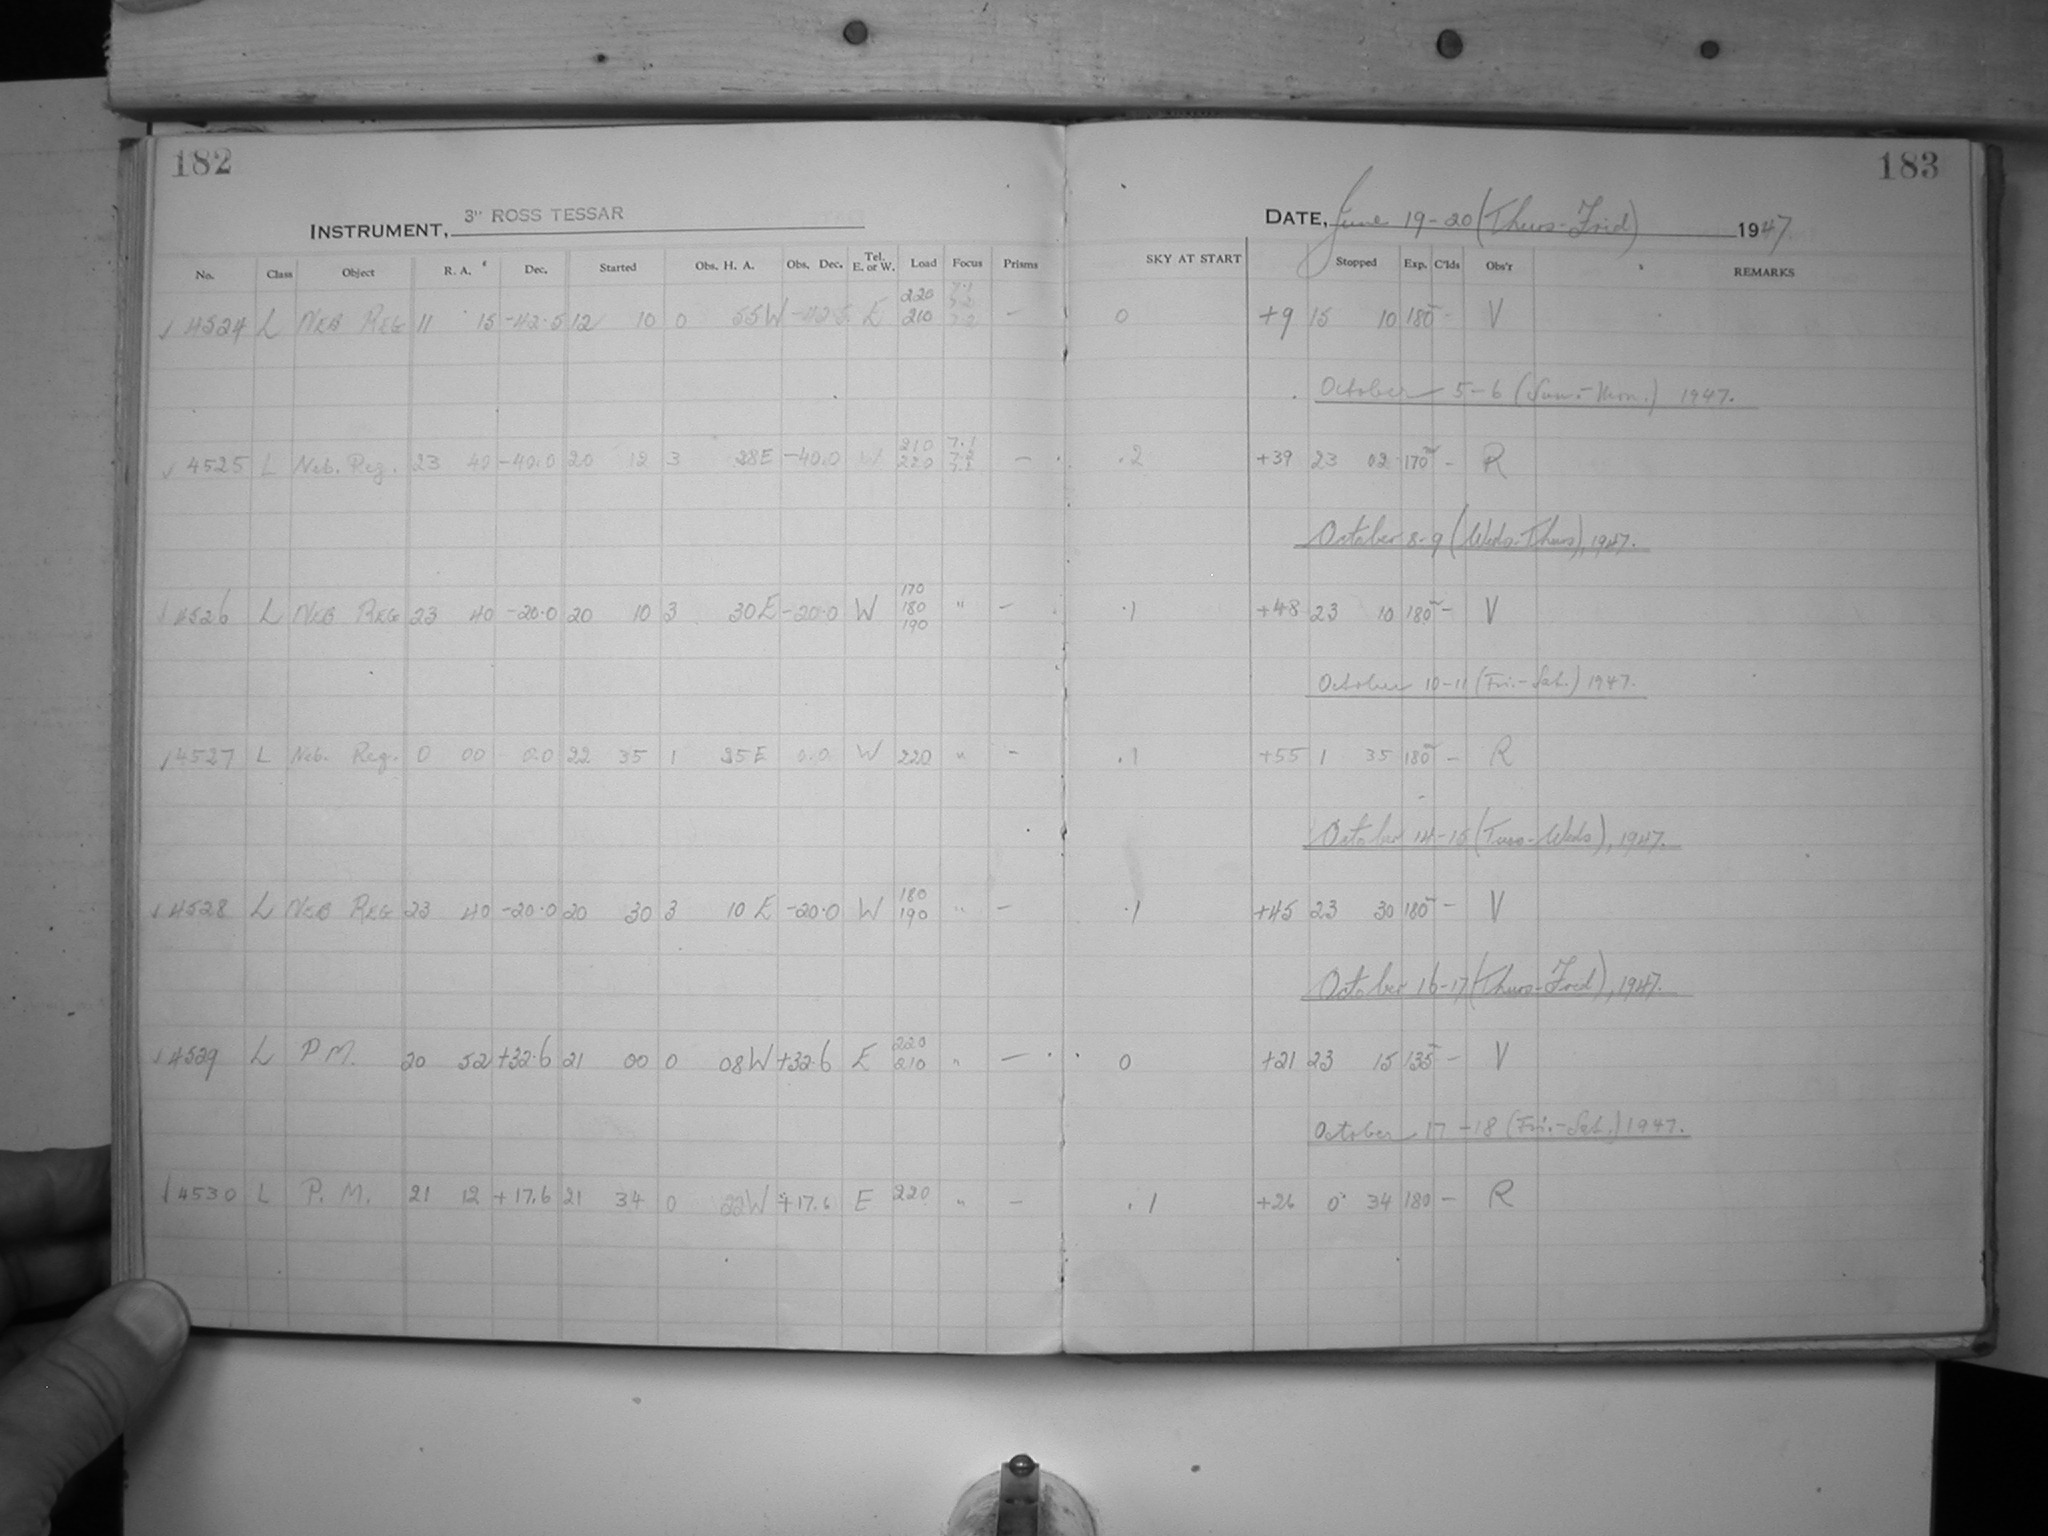 182
183
INSTRUMENT, 3" ROSS TESSAR
DATE, June 19-20 (Thurs-Frid) 1947.
No. Class Object R. A. Dec. Started Obs. H. A. Obs. Dec. Tel. E. or W. Load Focus Prisms SKY AT START Stopped Exp. C'lds Obs'r REMARKS
4524 L NEB REG 11 15 -42.5 12 10 0 55W -42.5 E 220 210 7.1 7.2 7.2 — 0 +9 15 10 180 - V
October 5-6 (Sun.-Mon.) 1947.
4525 L Neb. Reg. 23 40 -40.0 20 12 3 28E -40.0 W 210 220 7.1 7.2 7.2 — .2 +39 23 02 170 - R
October 8-9 (Weds-Thurs), 1947.
4526 L NEB REG 23 40 -20.0 20 10 3 30E -20.0 W 170 180 190 " — .1 +48 23 10 180 - V
October 10-11 (Fri.-Sat.) 1947.
4527 L Neb. Reg. 0 00 0.0 22 35 1 25E 0.0 W 220 " — .1 +55 1 35 180 - R
October 14-15 (Tues-Weds), 1947.
4528 L NEB REG 23 40 -20.0 20 30 3 10E -20.0 W 180 190 " — .1 +45 23 30 180 - V
October 16-17 (Thurs-Frid), 1947.
4529 L P.M. 20 52 +32.6 21 00 0 08W +32.6 E 220 210 " — 0 +21 23 15 135 - V
October 17-18 (Fri.-Sat.) 1947.
4530 L P. M. 21 12 +17.6 21 34 0 22W +17.6 E 220 " — .1 +26 0 34 180 - R